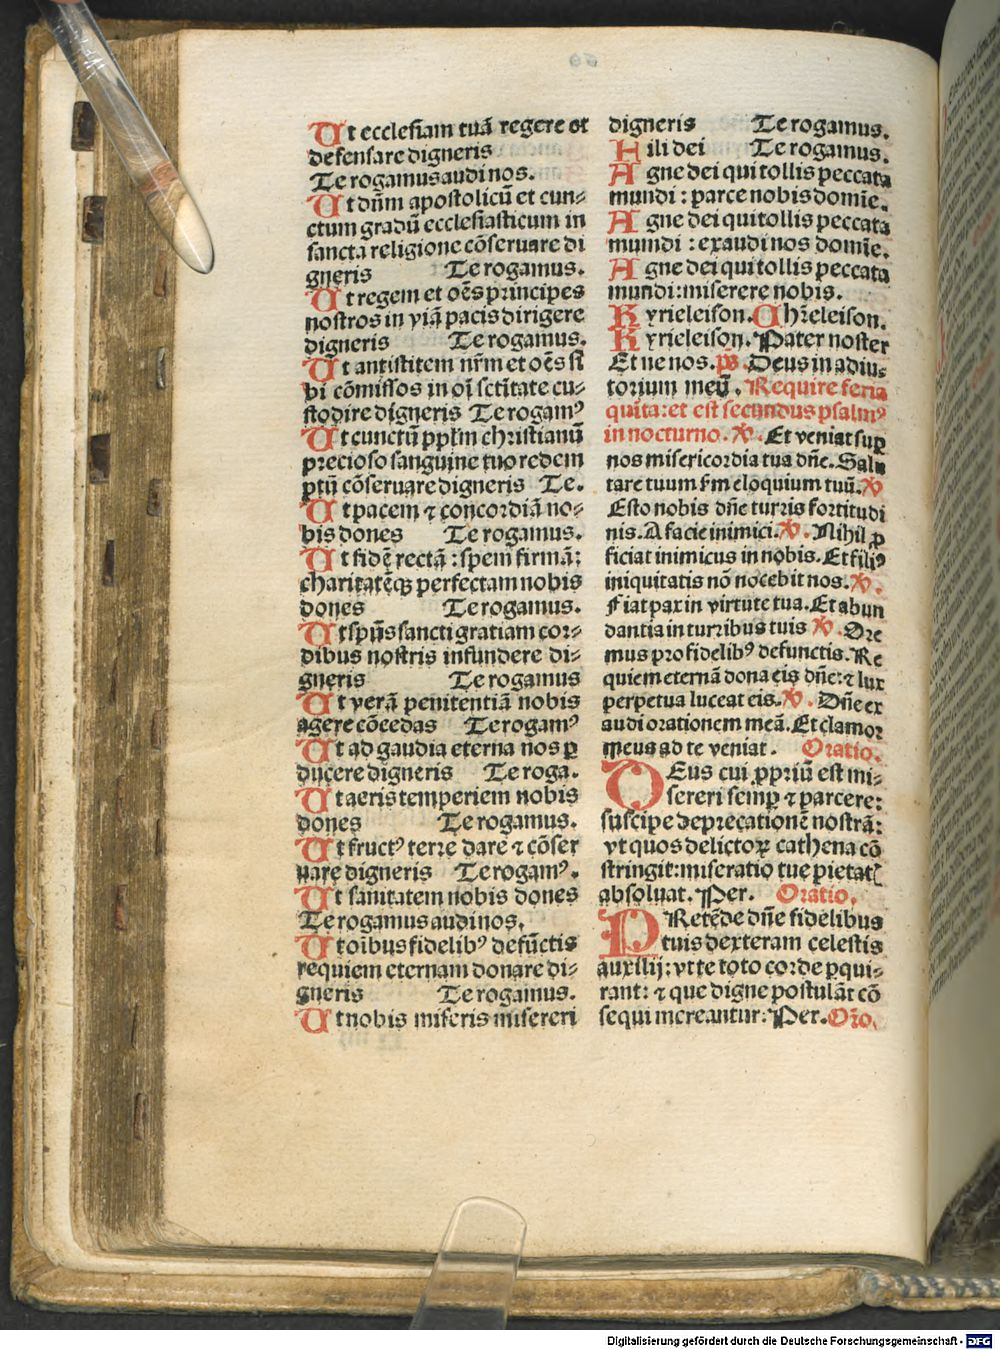 Ut ecclesiam tuā regere et
defensare digneris
Te rogamus audi nos.
Ut dn̄m apostolicū et cun⸗
ctum gradū ecclesiasticum in
sancta religione cōseruare di
gneris Te rogamus.
Ut regem et oēs principes
nostros in viā pacis dirigere
digneris Te rogamus.
Ut antistitem nr̄m et oēs si
bi cōmissos in oī sctītate cu⸗
stodire digneris Te rogamꝰ
Ut cunctū ppl̄m christianū
precioso sanguine tuo redem
ptū cōseruare digneris Te.
Ut pacem ⁊ concordiā no⸗
bis dones Te rogamus.
Ut fidē rectā : spem firmā:
charitatēqꝫ perfectam nobis
dones Te rogamus.
Ut spūs sancti gratiam cor⸗
dibus nostris infundere di⸗
gneris Te rogamus
Ut verā penitentiā nobis
agere cōcedas Te rogamꝰ
Ut ad gaudia eterna nos ꝑ
ducere digneris Te roga.
Ut aeris temperiem nobis
dones Te rogamus.
Ut fructꝰ terre dare ⁊ cōser
uare digneris Te rogamꝰ.
Ut sanitatem nobis dones
Te rogamus audi nos.
Ut oībus fidelibꝰ defūctis
requiem eternam donare di⸗
gneris Te rogamus.
Ut nobis miseris misereri
digneris Te rogamus.
Fili dei Te rogamus.
Agne dei qui tollis peccata
mundi : parce nobis domīe.
Agne dei qui tollis peccata
mundi : exaudi nos domīe.
Agne dei qui tollis peccata
mundi: miserere nobis.
Kyrieleison. Chr̄eleison.
Kyrieleison. Pater noster
Et ne nos. ps. Deus in adiu⸗
torium meū. Require feria
quīta: et est secundus psalmꝰ
in nocturno. ℣. Et veniat suꝑ
nos misericordia tua dn̄e. Salu
tare tuum ẜm eloquium tuū. ℣
Esto nobis dn̄e turris fortitudi
nis. A facie inimici. ℣. Nihil ꝓ
ficiat inimicus in nobis. Et filiꝰ
iniquitatis nō nocebit nos. ℣.
Fiat pax in virtute tua. Et abun
dantia in turribus tuis ℣. Ore
mus pro fidelibꝰ defunctis. Re
quiem eternā dona eis dn̄e: ⁊ lux
perpetua luceat eis. ℣. Dn̄e ex
audi orationem meā. Et clamor
meus ad te veniat. Oratio.
DEus cui ꝓpriū est mi⸗
sereri semꝑ ⁊ parcere:
suscipe deprecationē nostrā:
vt quos delictoꝝ cathena cō
stringit: miseratio tue pietatꝭ
absoluat. Per. Oratio.
PRetēde dn̄e fidelibus
tuis dexteram celestis
auxilij: vt te toto corde ꝑqui⸗
rant: ⁊ que digne postulāt cō
sequi mereantur: Per. Or̄o.
Digitalisierung gefördert durch die Deutsche Forschungsgemeinschaft - DFG